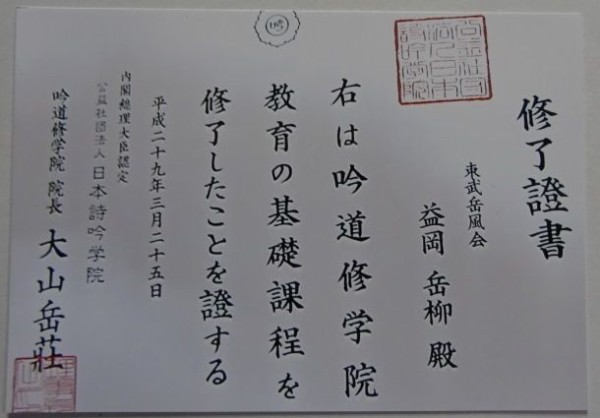 修了證書
東武岳風会
益岡岳柳殿
右は吟道修学院
教育の基礎課程を
修了したことを證する
平成二十九年三月二十五日
内閣總理大臣認定
公益社団法人日本詩吟学院
吟道修学院 院長 大山岳莊